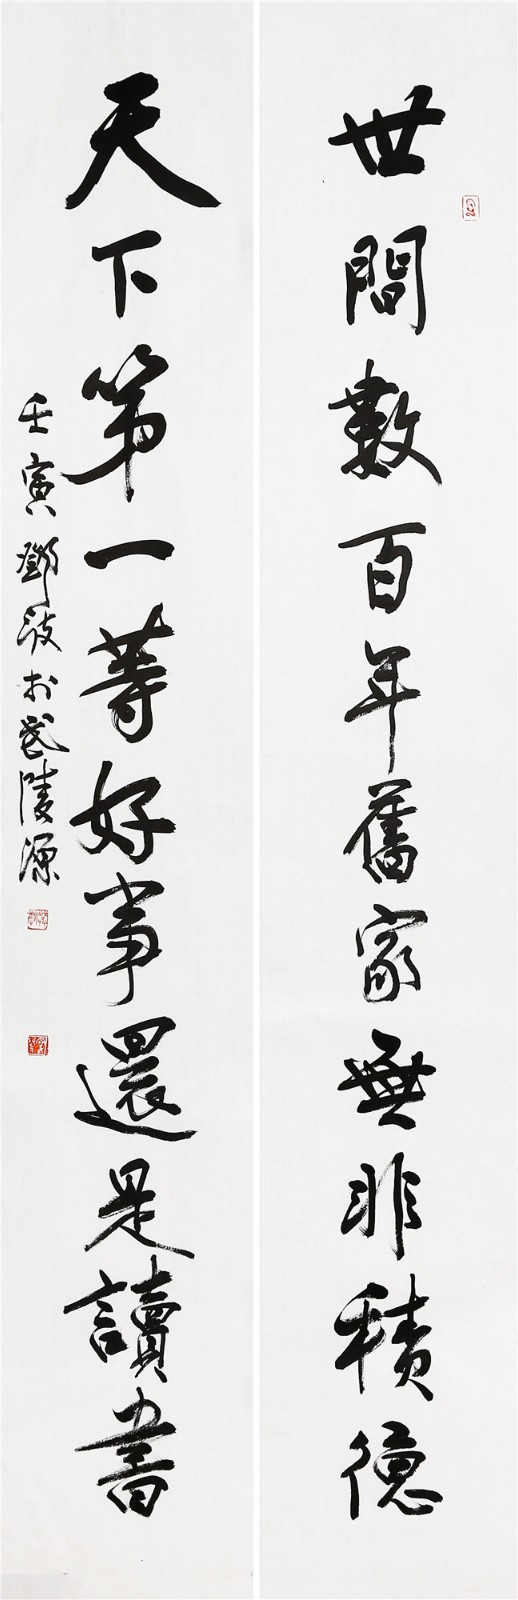 世間數百年舊家無非積德
天下第一等好事還是讀書
壬寅鄧波於武陵源